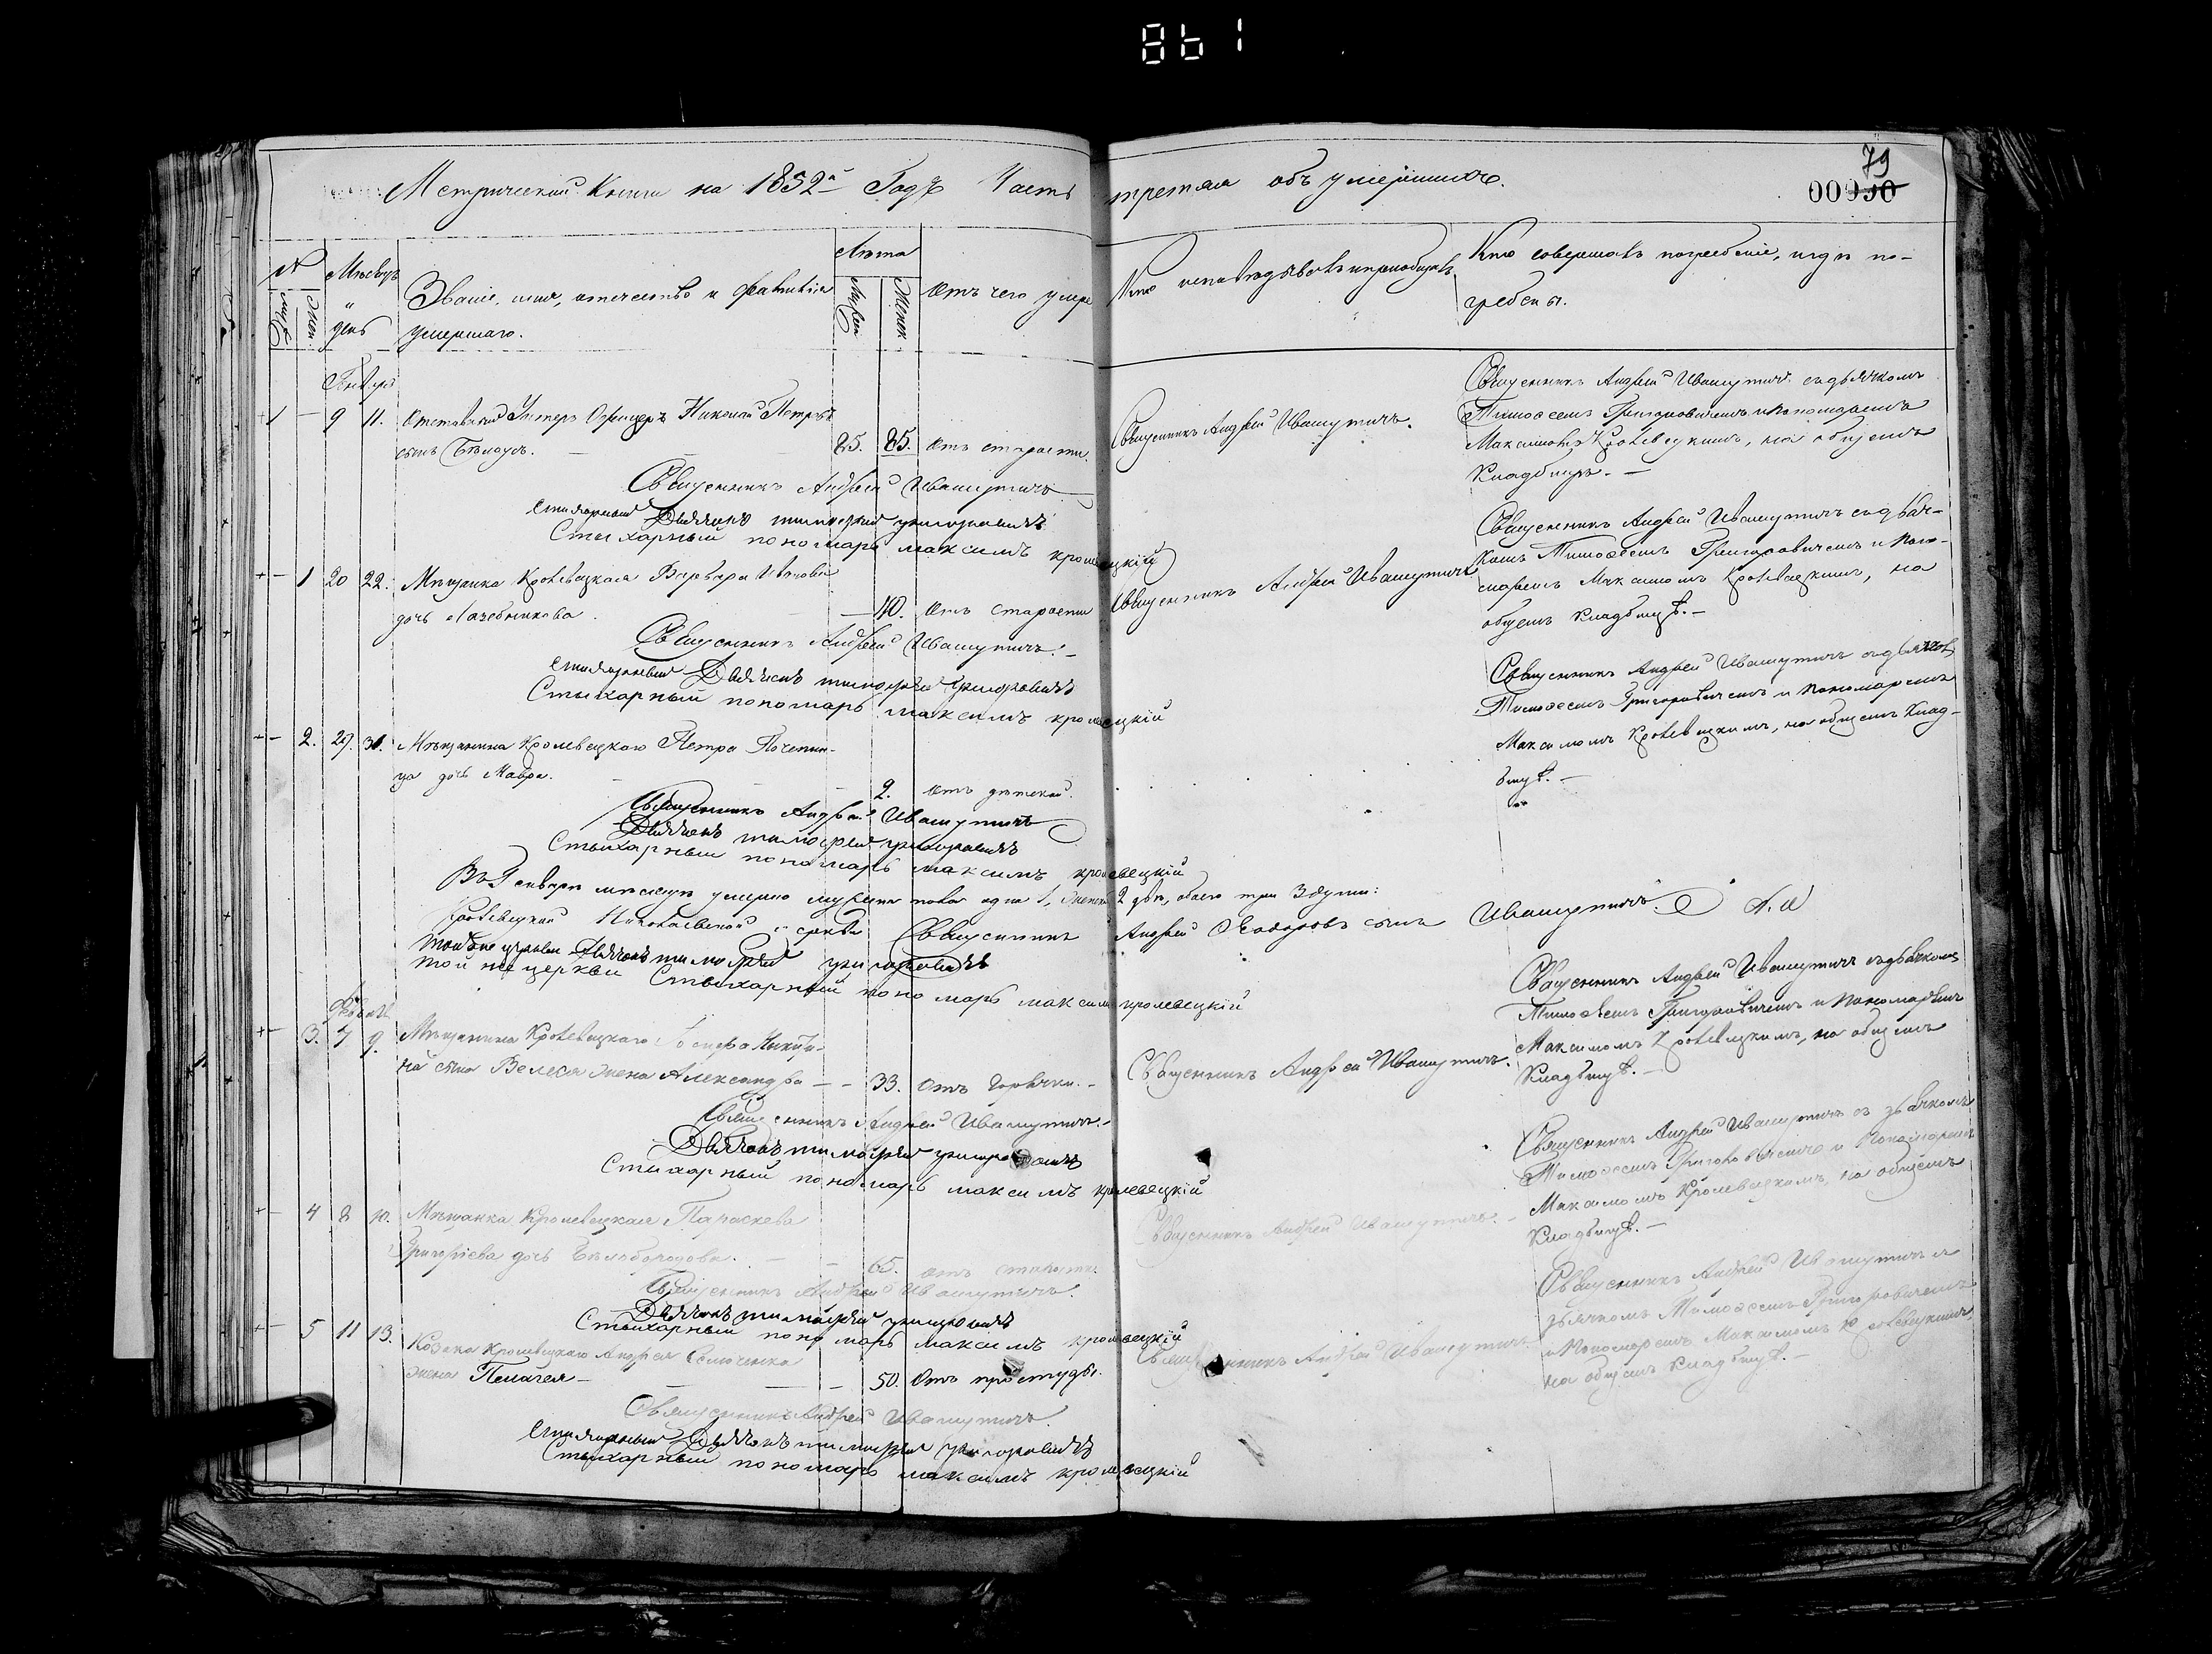 861
Метрической Книги на 1852й Годъ Часть третяя объ умершихъ.
79
00930
№
Муж.
Жен.
Мѣсяцъ и день
Званіе, имя, отечество и фамилія
умершаго.
Лѣта
Мужск.
Женск.
Отъ чего умре
Кто исповѣдывалъ и пріобщалъ
Кто совершалъ погребеніе, и гдѣ по-
гребены.
Январь
1 — 9 11. Отставный Унтеръ Офицеръ Николай Петровъ
сынъ Бѣлоусъ. — 85. 85. Отъ старости.
Священникъ Андрей Ивашутичъ.
Священникъ Андрей Ивашутичъ съ дьячкомъ
Тимоѳеемъ Григоровичемъ и Пономаремъ
Максимомъ Кролевецкимъ, на общемъ
Кладбищѣ. —
Священникъ Андрей Ивашутичъ
Стихарный Дьячокъ тимофей григоровичъ
Стыхарный пономарь максимъ кролевецкій
— 1 20 22. Мѣщанка Кролевецкая Варвара Иванова
дочь Лазебникова — 40. Отъ старости
Священникъ Андрей Ивашутичъ
Священникъ Андрей Ивашутичъ съ дьяч-
комъ Тимоѳеемъ Григоровичемъ и Поно-
маремъ Максимомъ Кролевецкимъ, на
общемъ Кладбищѣ. —
Священникъ Андрей Ивашутичъ. —
Стихарный Дьячокъ тимофей григоровичъ
Стыхарный пономарь максимъ кролевецкій
— 2. 29. 31. Мѣщанина Кролевецкаго Петра
дочь Мавра. — 2. Отъ дѣтской.
Священникъ Андрей Ивашутичъ съ дьячкомъ
Тимоѳеемъ Григоровичемъ и Пономаремъ
Максимомъ Кролевецкимъ, на общемъ Клад-
бищѣ. —
Священникъ Андрей Ивашутичъ
Дьячокъ тимофей григоровичъ
Стыхарный пономарь максимъ кролевецкій
Въ Генварѣ мѣсяцѣ умерло мужеска пола одна 1, женска 2 двѣ, обоего три 3 души:
Кролевецкой Николаевской церкви Священникъ Андрей Ѳеодоровъ сынъ Ивашутичъ.
Тойже церкви Дьячокъ тимофей григоровичъ
той же церкви Стыхарный пономарь максимъ кролевецкій
Февраль
— 3. 7 9. Мѣщанина Кролевецкаго Никити-
на сына Велеса жена Александра — — 33. Отъ Горячки. —
Священникъ Андрей Ивашутичъ.
Священникъ Андрей Ивашутичъ съ дьячкомъ
Тимоѳеемъ Григоровичемъ и Пономаремъ
Максимомъ Кролевецкимъ, на общемъ
Кладбищѣ. —
Священникъ Андрей Ивашутичъ. —
Дьячокъ тимофей григоровичъ
Стыхарный пономарь максимъ кролевецкій
— 4 8 10. Мѣщанка Кролевецкая Параскева
Григоріева дочь Бѣлобородова. — — 65. Отъ старости.
Священникъ Андрей Ивашутичъ. —
Священникъ Андрей Ивашутичъ съ дьячкомъ
Тимоѳеемъ Григоровичемъ и Пономаремъ
Максимомъ Кролевецкимъ, на общемъ
Кладбищѣ. —
Священникъ Андрей Ивашутичъ.
Дьячокъ тимофей григоровичъ
Стыхарный пономарь максимъ кролевецкій
— 5 11 13. Козака Кролевецкаго Андрея
жена Пелагея — — — 50. Отъ простуды.
Священникъ Андрей Ивашутичъ.
Священникъ Андрей Ивашутичъ съ
дьячкомъ Тимоѳеемъ Григоровичемъ
и Пономаремъ Максимомъ Кролевецкимъ,
на общемъ Кладбищѣ. —
Священникъ Андрей Ивашутичъ.
Стихарный Дьячокъ тимофей григоровичъ
Стыхарный пономарь максимъ кролевецкій